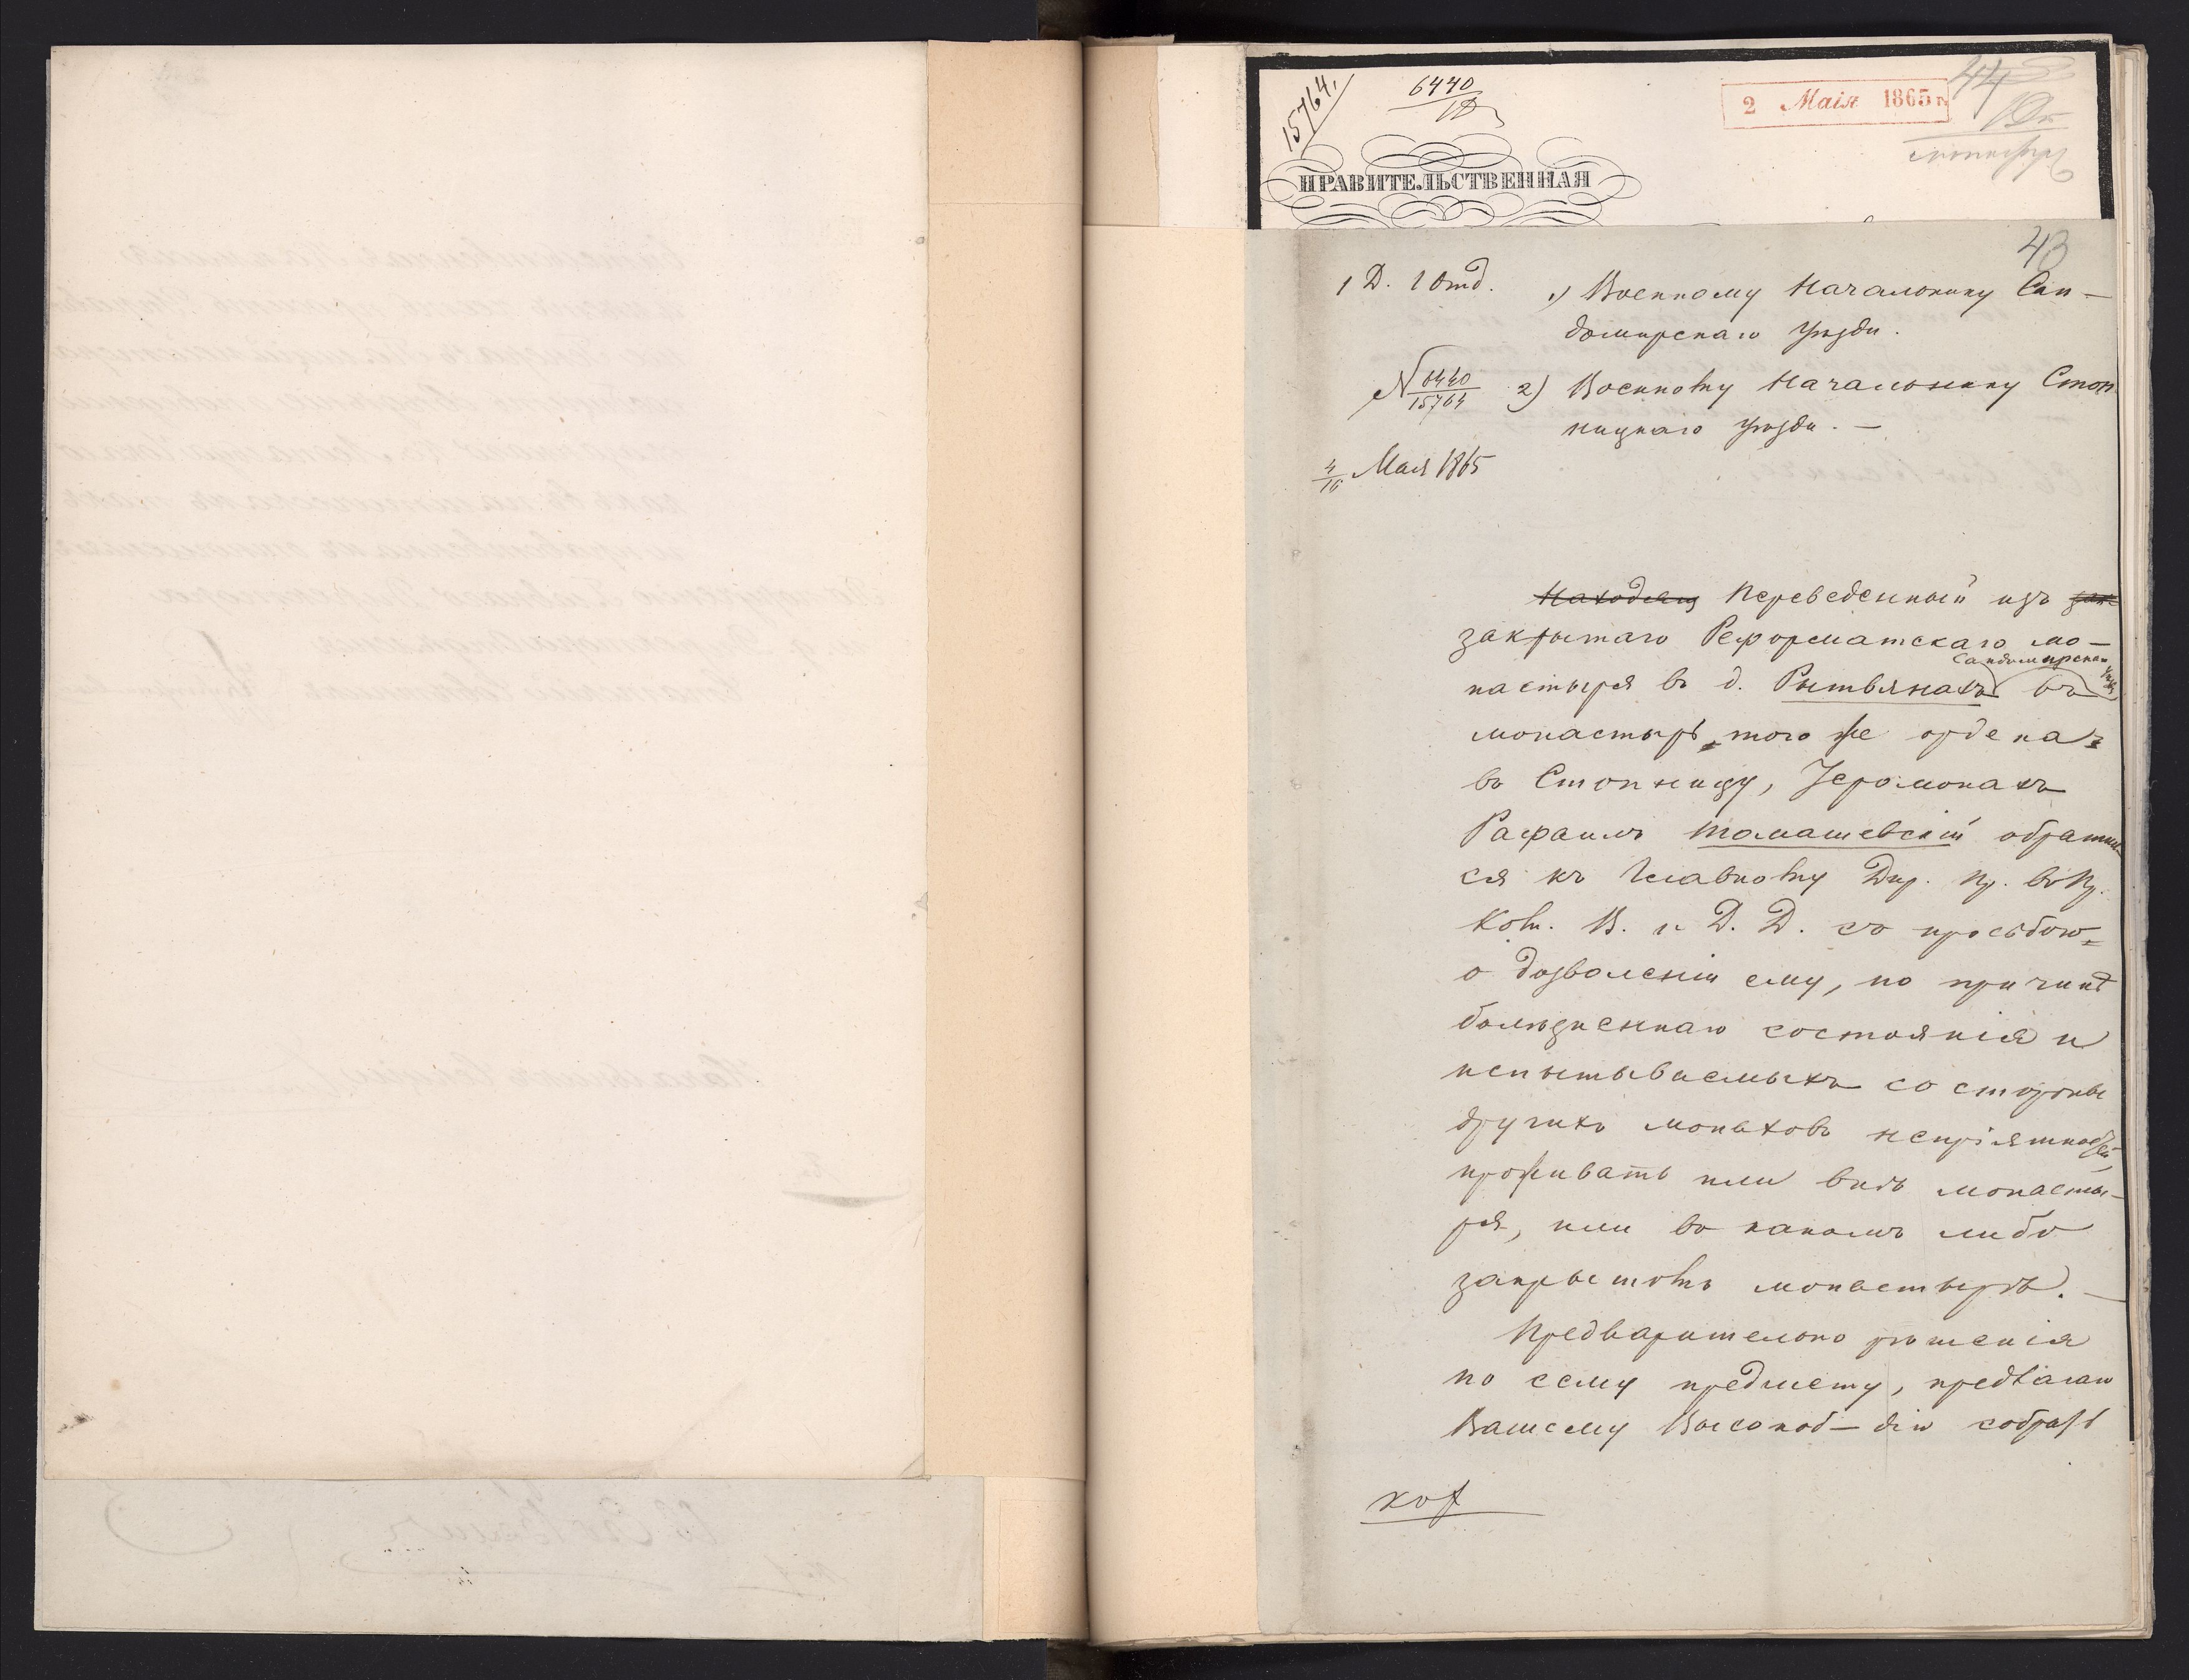 15764.
6440
2 Маія 1865 г.
44
ПРАВИТЕЛЬСТВЕННАЯ
43
1 Д. 1 Отд.
1) Военному Начальнику Сан-
домирскаго уѣзда.
№ 6440
15764
2) Военному Начальнику Стоп-
ницкаго уѣзда. —
4/16 Мая 1865
Находящ Переведенный изъ зак
закрытаго Реформатскаго мо-
Сандомирскаго уѣзда
настыря въ д. Рытвянахъ въ
монастырь того же ордена
въ Стопницу, Іеромонахъ
Рафаилъ Томашевскій обратил-
ся къ Главному Дир. Пр. въ Пр.
Ком. В. и Д. Д. съ просьбою
о дозволеніи ему, по причинѣ
болѣзненнаго состоянія и
испытываемыхъ со стороны
другихъ монаховъ непріятностей,
проживать или внѣ монасты-
ря, или въ какомъ либо
закрытомъ монастырѣ. —
Предварительно рѣшенія
по сему предмету, предлагаю
Вашему Высокоб—дію собрать